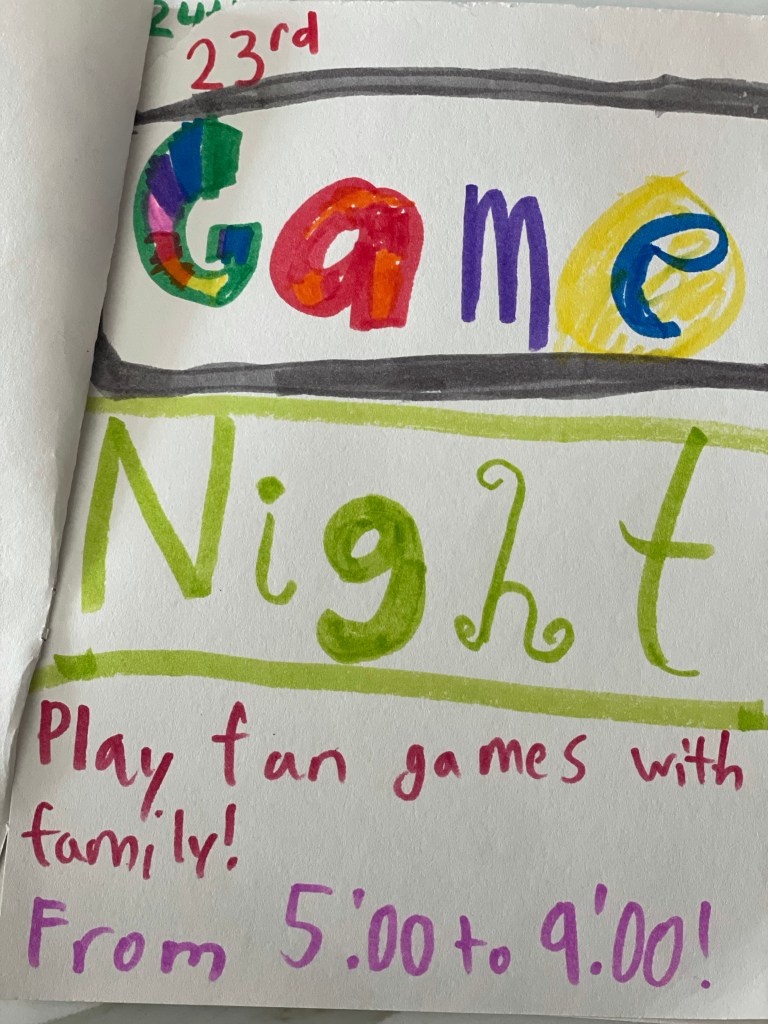 23rd
Game
Night
Play fan games with
family!
From 5:00 to 9:00!